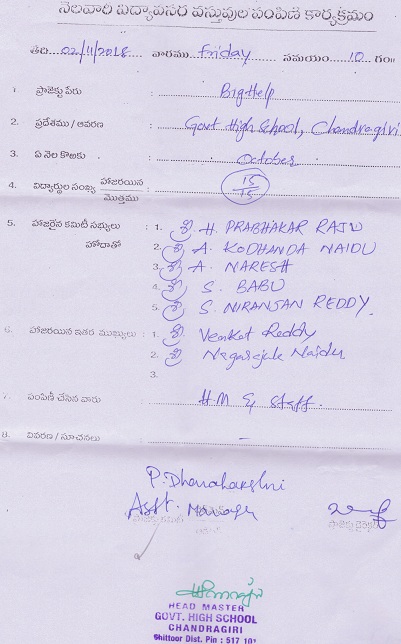 నెలవారి విద్యావసర వస్తువుల పంపిణీ కార్యక్రమం
తేది 02/11/2018 వారము Friday సమయం 10 గం॥
1 ప్రాజెక్టు పేరు : BigHelp
2. ప్రదేశము / ఆవరణ : Govt High School, Chandragiri
3. ఏ నెల కొఱకు : October
4. విద్యార్థుల సంఖ్య హాజరయిన / మొత్తము : 15/15
5. హాజరైన కమిటీ సభ్యులు : 1. శ్రీ H. PRABHAKAR RAJU
హోదాతో 2. శ్రీ A. KODHANDA NAIDU
3. శ్రీ A. NARESH
4. శ్రీ S. BABU
5. శ్రీ S. NIRANJAN REDDY
6. హాజరయిన ఇతర ముఖ్యులు : 1. శ్రీ Venkat Reddy
2. శ్రీ Nagarajulu Naidu
3.
7. పంపిణీ చేసిన వారు : H.M & Staff.
8. వివరణ / సూచనలు : -
P. Dhanalakshmi
Asst. Manager
ప్రాజెక్టు కమిటీ ప్రాజెక్టు డైరెక్టర్
HEAD MASTER
GOVT. HIGH SCHOOL
CHANDRAGIRI
Chittoor Dist. Pin : 517 101